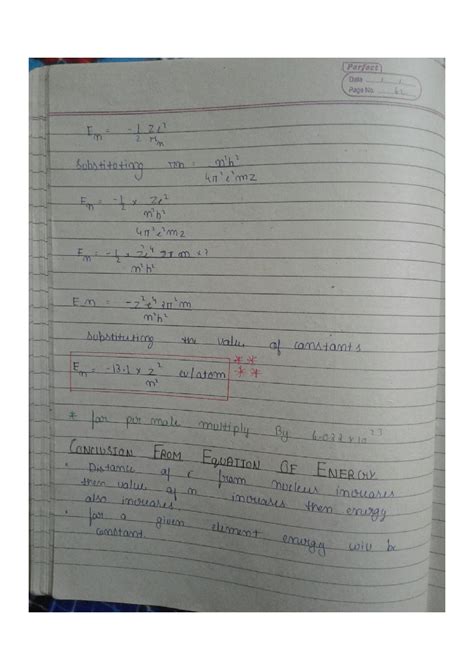 Perfect
Date
Page No. 62
En = -1/2 Ze²/rn
Substituting rn = n²h²/4π²e²mZ
En = -1/2 × Ze²/n²h²
4π²e²mZ
En = -1/2 ×
n²h²
En = -Z²e⁴2π²m
n²h²
Substituting the value of constants
En = -13.1 × Z²/n² ev/atom **
**
* for per mole multiply By 6.022 × 10²³
CONCLUSION FROM EQUATION OF ENERGY
• Distance of e from nucleus increases
then value of n increases then energy
also increases
• for a given element energy will be
constant